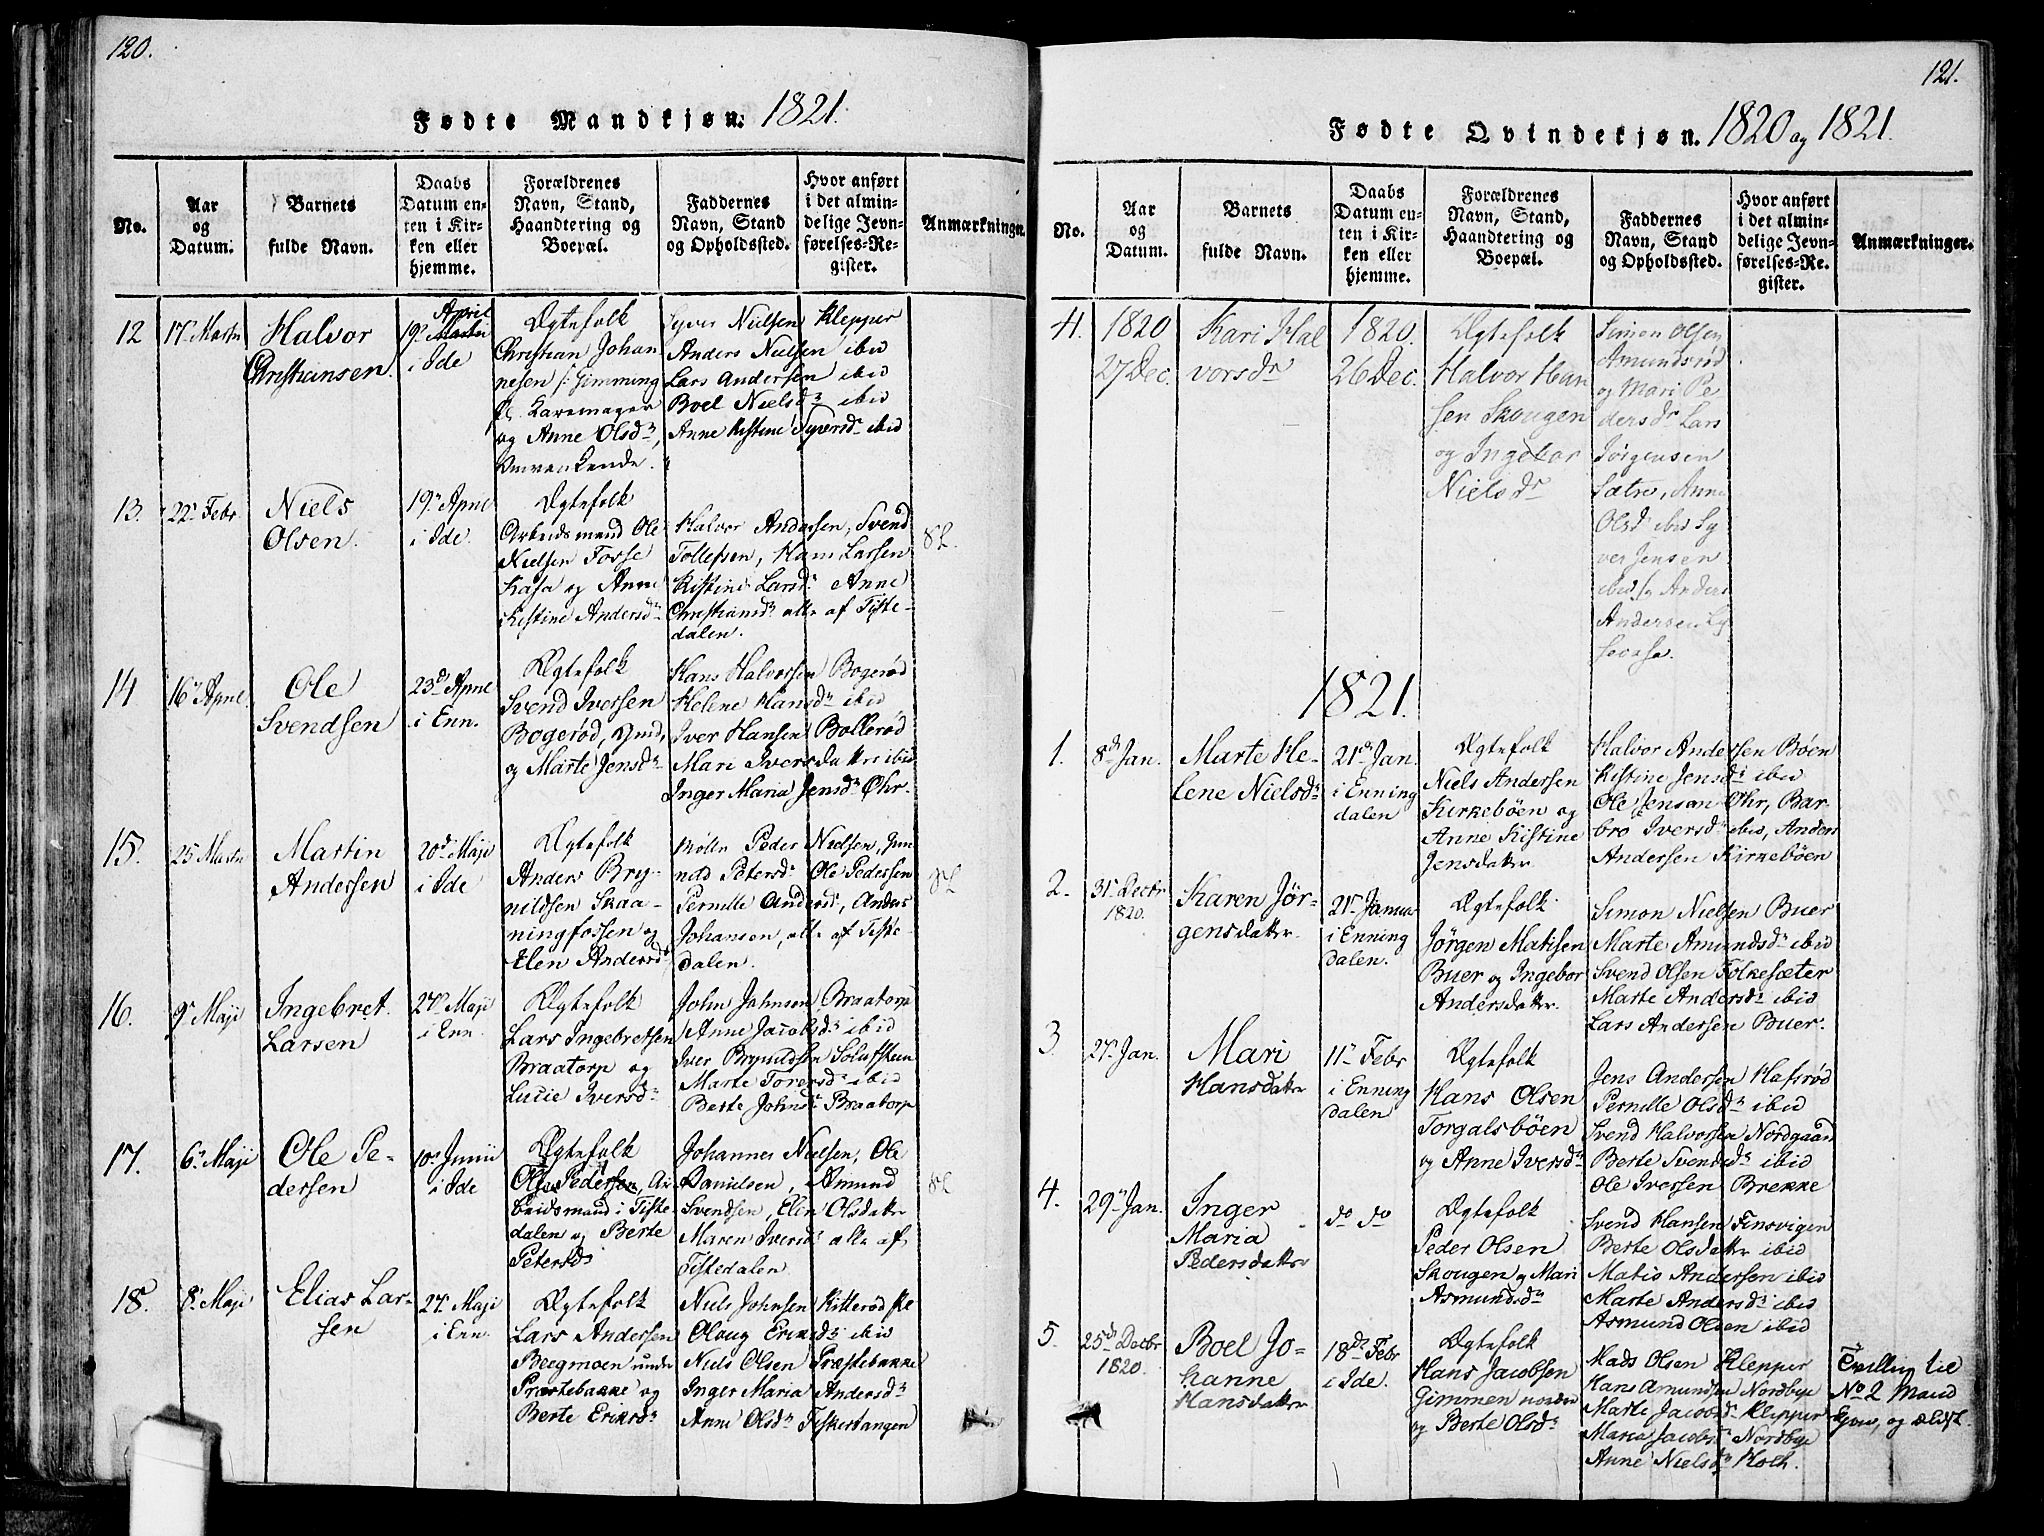 120.
Fødte Mandkjøn. 1821.
No.
Aar
og
Datum.
Barnets
fulde Navn.
Daabs
Datum en-
ten i Kir-
ken eller
hjemme.
Forældrenes
Navn, Stand,
Haandtering og
Boepæl.
Faddernes
Navn, Stand
og Opholdssted.
Hvor anført
i det almin-
delige Jevn-
førelses-Re-
gister.
Anmærkninger.
12
17 Martii
Halvor
Christiansen.
April
19 Martii
i Ide
Ægtefolk
Christian Johan
nesen Gimming
og Anne Olsdr,
Nielsen Klepper
Anders Nielsen ibid
Lars Andersen ibid
Boel Nielsdr ibid
Anne Kistine Syversdr ibid
13.
22 Febr.
Niels
Olsen.
19 April
i Ide.
Ægtefolk
Arbeidsmand Ole
Nielsen Fosse
Kasa og Anne
Kistine Andersdr
Halvor Andersen, Svend
Tollefsen, Hans Larsen
Kistine Larsdr Anne
Christiansdr alle af Tiste-
dalen.
14
16 April
Ole
Svendsen
23d April
i Enn.
Ægtefolk
Svend Iversen
Bogerød,
og Marte Jensdr
Hans Halvorsen Bogerød
Helene Hansdr ibid
Iver Hansen Bollerød
Mari Iversdatter ibid
Inger Maria Jensdr Øhr.
15.
25 Martii
Martin
Andersen
20d Maji
i Ide
Ægtefolk
Anders Bry-
nildsen Skaa-
ningfossen og
Elen Andersdr
Peder Nielsen, Gun
nild Petersdr Ole Pedersen
Pernille Andersdr, Anders
Johansen, alle af Tiste-
dalen.
16.
9 Maji
Ingebret
Larsen
27 Maji
i Enn.
Ægtefolk
Lars Ingebretsen
Braatorp og
Lucie Iversdr
John Johnsen Braatorp
Anne Jacobsdr ibid
Iver Brynildsen
Marte Toresdr ibid
Berte Johnsdr Braatorp
17.
6 Maji
Ole Pe-
dersen
10 Junii
i Ide
Ægtefolk
Pedersen, Ar
beidsmand i Tiste
dalen og Berte
Petersdr
Johannes Nielsen, Ole
Danielsen, Asmund
Svendsen, Elin Olsdatter
Maren Iversdr alle af
Tistedalen
18.
8 Maji
Elias Lar-
sen
27 Maji
i Enn.
Ægtefolk
Lars Andersen
Bergmoen under
Præstebakke og
Berte Eriksdr
Niels Johnsen Kitterød
Oloug Eriksdr ibid
Niels Olsen Præstebakke
Inger Maria Andersdr
Anne Olsdr Fiskertangen
121.
Fødte Qvindekjøn. 1820 og 1821.
No.
Aar
og
Datum.
Barnets
fulde Navn.
Daabs
Datum en-
ten i Kir-
ken eller
hjemme.
Forældrenes
Navn, Stand,
Haandtering og
Boepæl.
Faddernes
Navn, Stand
og Opholdssted.
Hvor anført
i det almin-
delige Jevn-
førelses-Re-
gister.
Anmærkninger.
41.
1820
27 Dec.
Kari Hal
vorsdr
1820.
26 Dec.
Ægtefolk
Halvor Han
sen Skougen
og Ingebor
Nielsdr
Simon Olsen
Amundsrød
og Mari Pe
dersdr Lars
Jörgensen
Sætre, Anne
Olsdr ibid Sy
ver Jensen
ibid og Anders
Andersen
1821.
1.
8d Jan.
Marte He-
lene Nielsdr
21d Jan.
i Enning
dalen
Ægtefolk
Niels Andersen
Kirkebøen og
Anne Kistine
Jensdatter
Halvor Andersen Bøen
Kistine Jensdr ibid
Ole Jensen Øhr, Bar-
bro Iversdr ibid, Anders
Andersen Kirkebøen
2.
31 Decbr
1820.
Karen Jör-
gensdatter.
21 Janua
i Enning
dalen.
Ægtefolk
Jörgen Matisen
Buer og Ingebor
Andersdatter.
Simon Nielsen Buer
Marte Amundsdr ibid
Svend Olsen Folkesæter
Marte Andersdr ibid
Lars Andersen Buer.
3.
27 Jan.
Mari
Hansdatter
11 Febr
i Enning
dalen
Ægtefolk
Hans Olsen
Torgalsbøen
og Anne Iversdr
Jens Andersen Hafsrød
Pernille Olsdr ibid
Svend Halvorsen Nordgaard
Berte Svendsdr ibid
Ole Iversen Brekke
4.
29 Jan.
Inger
Maria
Pedersdatter
do do
Ægtefolk
Peder Olsen
Skougen og Mari
Asmundsdr
Svend Hansen Finsvigen
Berte Olsdatter ibid
Matis Andersen ibid
Marte Andersdr ibid
Asmund Olsen ibid
5.
25d Decbr
1820.
Boel Jo-
hanne
Hansdatter
18d Febr
i Ide.
Ægtefolk
Hans Jacobsen
Gimmen nordre
og Berte Olsdr
Mads Olsen Klepper
Hans Amundsen Nordbye
Marte Jacobsdr Klepper
Maria Jacobsdr Nordbye
Anne Nielsdr Holt.
Tvilling til
No 2 Mand
kjøn, og ældst